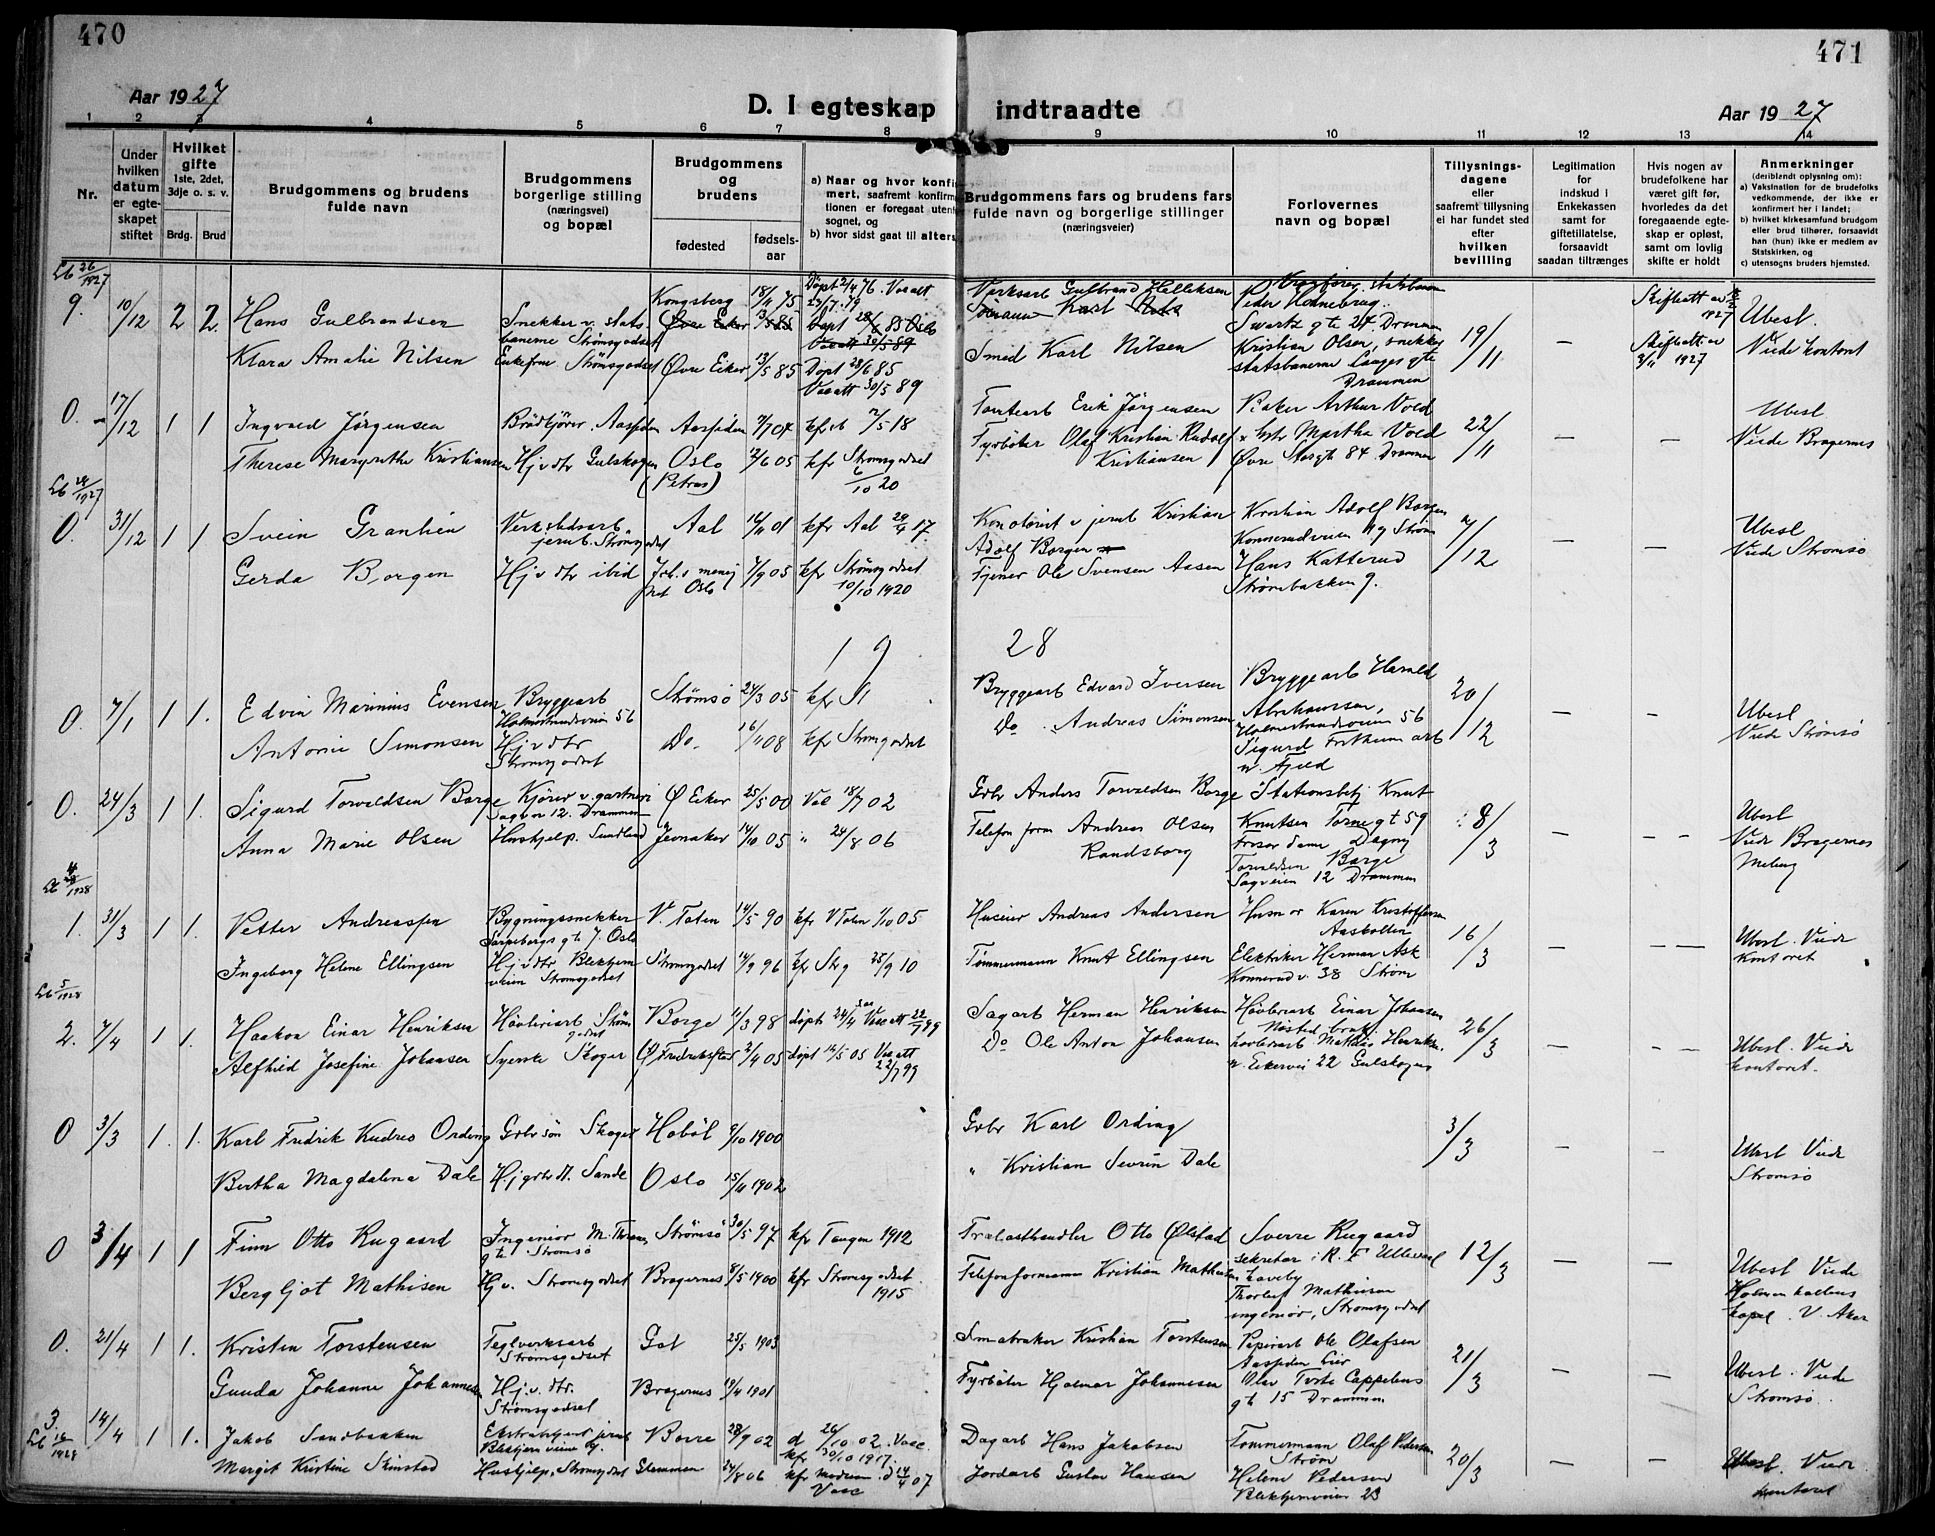 470
471
Aar 1927
D. I egteskap indtraadte
Aar 1927
1 2 3 4 5 6 7 8 9 10 11 12 13 14
Nr.
Under hvilken datum er egteskapet stiftet
Hvilket gifte 1ste, 2det, 3dje o. s. v.
Brdg. Brud
Brudgommens og brudens fulde navn
Brudgommens borgerlige stilling (næringsvei) og bopæl
Brudgommens og brudens
fødested
fødsels-aar
a) Naar og hvor konfirmert, saafremt konfirmationen er foregaat utenfor sognet, og
b) hvor sidst gaat til alters
Brudgommens fars og brudens fars fulde navn og borgerlige stillinger (næringsveier)
Forlovernes navn og bopæl
Tillysningsdagene eller saafremt tillysning ei har fundet sted efter hvilken bevilling
Legitimation for indskud i Enkekassen samt for giftetillatelse, forsaavidt saadan tiltrænges
Hvis nogen av brudefolkene har været gift før, hvorledes da det foregaaende egteskap er opløst, samt om lovlig skifte er holdt
Anmerkninger (deriblandt oplysning om):
a) Vaksination for de brudefolks vedkommende, der ikke er konfirmert her i landet;
b) hvilket kirkesamfund brudgom eller brud tilhører, forsaavidt han (hun) ikke er medlem av Statskirken, og
c) utensogns bruders hjemsted.
Lb 26/1927
9. 10/12 2 2 Hans Gulbrandsen Snekker v. statsbanerne Strømsgodset Kongsberg 18/11 75 Døpt 2/4 76. Vaa att 23/7 79 Verksarb Gulbrand Helliksen Peder Honnebrag. Swartz gte 24 Drammen 19/11 — Skifteatt av 1927 Ubesl.
Klara Amalie Nilsen Enkefrue Strømsgodset Øvre Eiker 13/5 85 Døpt 28/6 85 Vaa att 30/5 89 Smed Karl Nilsen Kristian Olsen, snekker statsbanerne Langes gte Drammen Skifteatt av 3/11 1927 Viede kontoret
0. 17/12 1 1 Ingvald Jørgensen Brødkjører. Aassiden Aassiden 7/7 04 kfr 2/5 18 Tomtearb Erik Jørgensen Baker Arthur Vold 22/11 — — Ubesl.
Therese Margrethe Kristiansen Hj v dtr Gulskogen Oslo (Petrus) 12/6 05 kfr Strømsgodset 6/10 20 Fyrbøter Olaf Kristian Rudolf Kristiansen Martha Vold Øvre Storgt 84 Drammen Viede Bragernes
Lb 28/1927
0. 31/12 1 1 Svein Granlien Verkstedsarb. jernb. Strømsgodset Aal 16/11 01 kfr Aal 29/4 17 Kristian Adolf Borgen Kristian Adolf Borgen Konnerudveien Strøm 7/12 — — Ubesl
Gerda Borgen Hj v dtr ibid Oslo 7/9 05 kfr Strømsgodset 10/10 1920 Tjener Ole Svensen Aasen Hans Katterud Strømsbakken 9. Viede Strømsø
19 28
0. 7/1 1 1. Edvin Marinius Evensen Bryggearb Holmestrandsveien 56 Strømsø 24/3 05 kfr St Bryggearb Edvard Iversen Bryggearb Harald Abrahamsen, Holmestrandsveien 56 20/12 — — Ubesl
Antonie Simonsen Hj v dtr Strømsgodset Do. 16/11 08 kfr Strømsgodset Do. Andreas Simonsen Sigurd Fritheim arb n. Fjeld Viede Strømsø
0. 24/3 1 1. Sigurd Torvaldsen Borge Kjører v. gartneri Sagvn 12. Drammen Ø Eiker 25/5 00 Vac 18/7 02 Grbr Anders Torvaldsen Borge Stationsbetj Knut Knutsen Tornegt 59 8/3 — — Ubesl
Anna Marie Olsen Hushjelp. Sundland Jevnaker 14/10 05 " 24/8 06 Telefon form Andreas Olsen Randsborg Frisør dame Dagny Torvaldsen Borge Sagveien 12 Drammen Viede Bragernes
Lb 4/1928
1. 31/3 1 1. Petter Andreassen Bygningssnekker Sarpsborgs gte 7. Oslo V. Toten 14/5 90 kfr V Toten 1/10 05 Huseier Andreas Andersen Karen Kristoffersen Aaskollen 16/3 — — Ubesl. Viede kontoret
Ingeborg Helene Ellingsen Hj v dtr Blektjern veien Strømsgodset Strømsgodset 14/9 96 kfr Stg 25/9 10 Tømmermann Knut Ellingsen Elektriker Herman Ask Konnerudv. 38 Strøm
Lb 5/1928
2. 7/4 1 1. Haakon Einar Henriksen Høvleriarb. Strømsgodset Borge 11/3 98 døpt 24/4 Vac att 22/7 99 Sagarb Herman Henriksen Høvleriarb Einar Johansen 26/3 — — Ubesl. Viede kontoret.
Alfhild Josefine Johansen Syerske Skoger Fredrikstad 2/4 05 døpt 14/5 05 Vac att 22/7 99 Do Ole Anton Johansen Mathias Henriksen n. Eikervei 22 Gulskogen
0 3/3 1. 1. Karl Fredrik Kudres Ording Grbr søn Skoger Hobøl 9/10 1900 Grbr Karl Ording 3/3 — — Ubesl Viede Strømsø
Bertha Magdalena Dale Hj grbr dt. Sande Oslo 15/11 1902 " Kristian Severin Dale
0 3/4 1 1 Finn Otto Rugaard Ingeniør M. Thranes gte Strømsø Strømsø 30/5 97 kfr Tangen 1912 Trælasthandler Otto Ølstad Sverre Rugaard sekretær i R. F Ullevaal haveby 12/3 — — Ubesl Viede Holmenkollens kapel. V. Aker
Bergljot Mathisen Hj v. Strømsgodset Bragernes 8/5 1900 kfr Strømsgodset 1915 Telefonformann Kristian Mathisen Thorleif Mathisen ingeniør, Strømsgodset
0. 21/4 1 1. Kristen Torstensen Teglverksarb Strømsgodset Gol 25/5 1903 Smabruker Kristian Torstensen Papirarb Ole Olafsen Aassiden Lier 21/3 — — Ubesl. Viede Strømsø.
Gunda Johanne Johannesen Hj. v. dtr. Strømsgodset Bragernes 19/4 1901 Fyrbøter Hjalmar Johannesen Olav Torte Cappelens gt 15 Drammen
3. Lb 16/1928 14/4 1 1. Jakob Sandbakken Ekstrabetjent jernb Blektjernveien 9. Borre 28/9 02 d 26/10 02. Vacc. kfr 30/10 1917. Dagarb Hans Jakobsen Tømmermann Olaf Pedersen Strøm 20/3 — — Ubesl. Viede kontoret
Margit Kristine Skinstad Hushjelp, Strømsgodset Glemmen 24/8 06 kfr d 14/4 07 Vacc Jordarb Gustav Hansen Helene Pedersen Blektjernveien 23